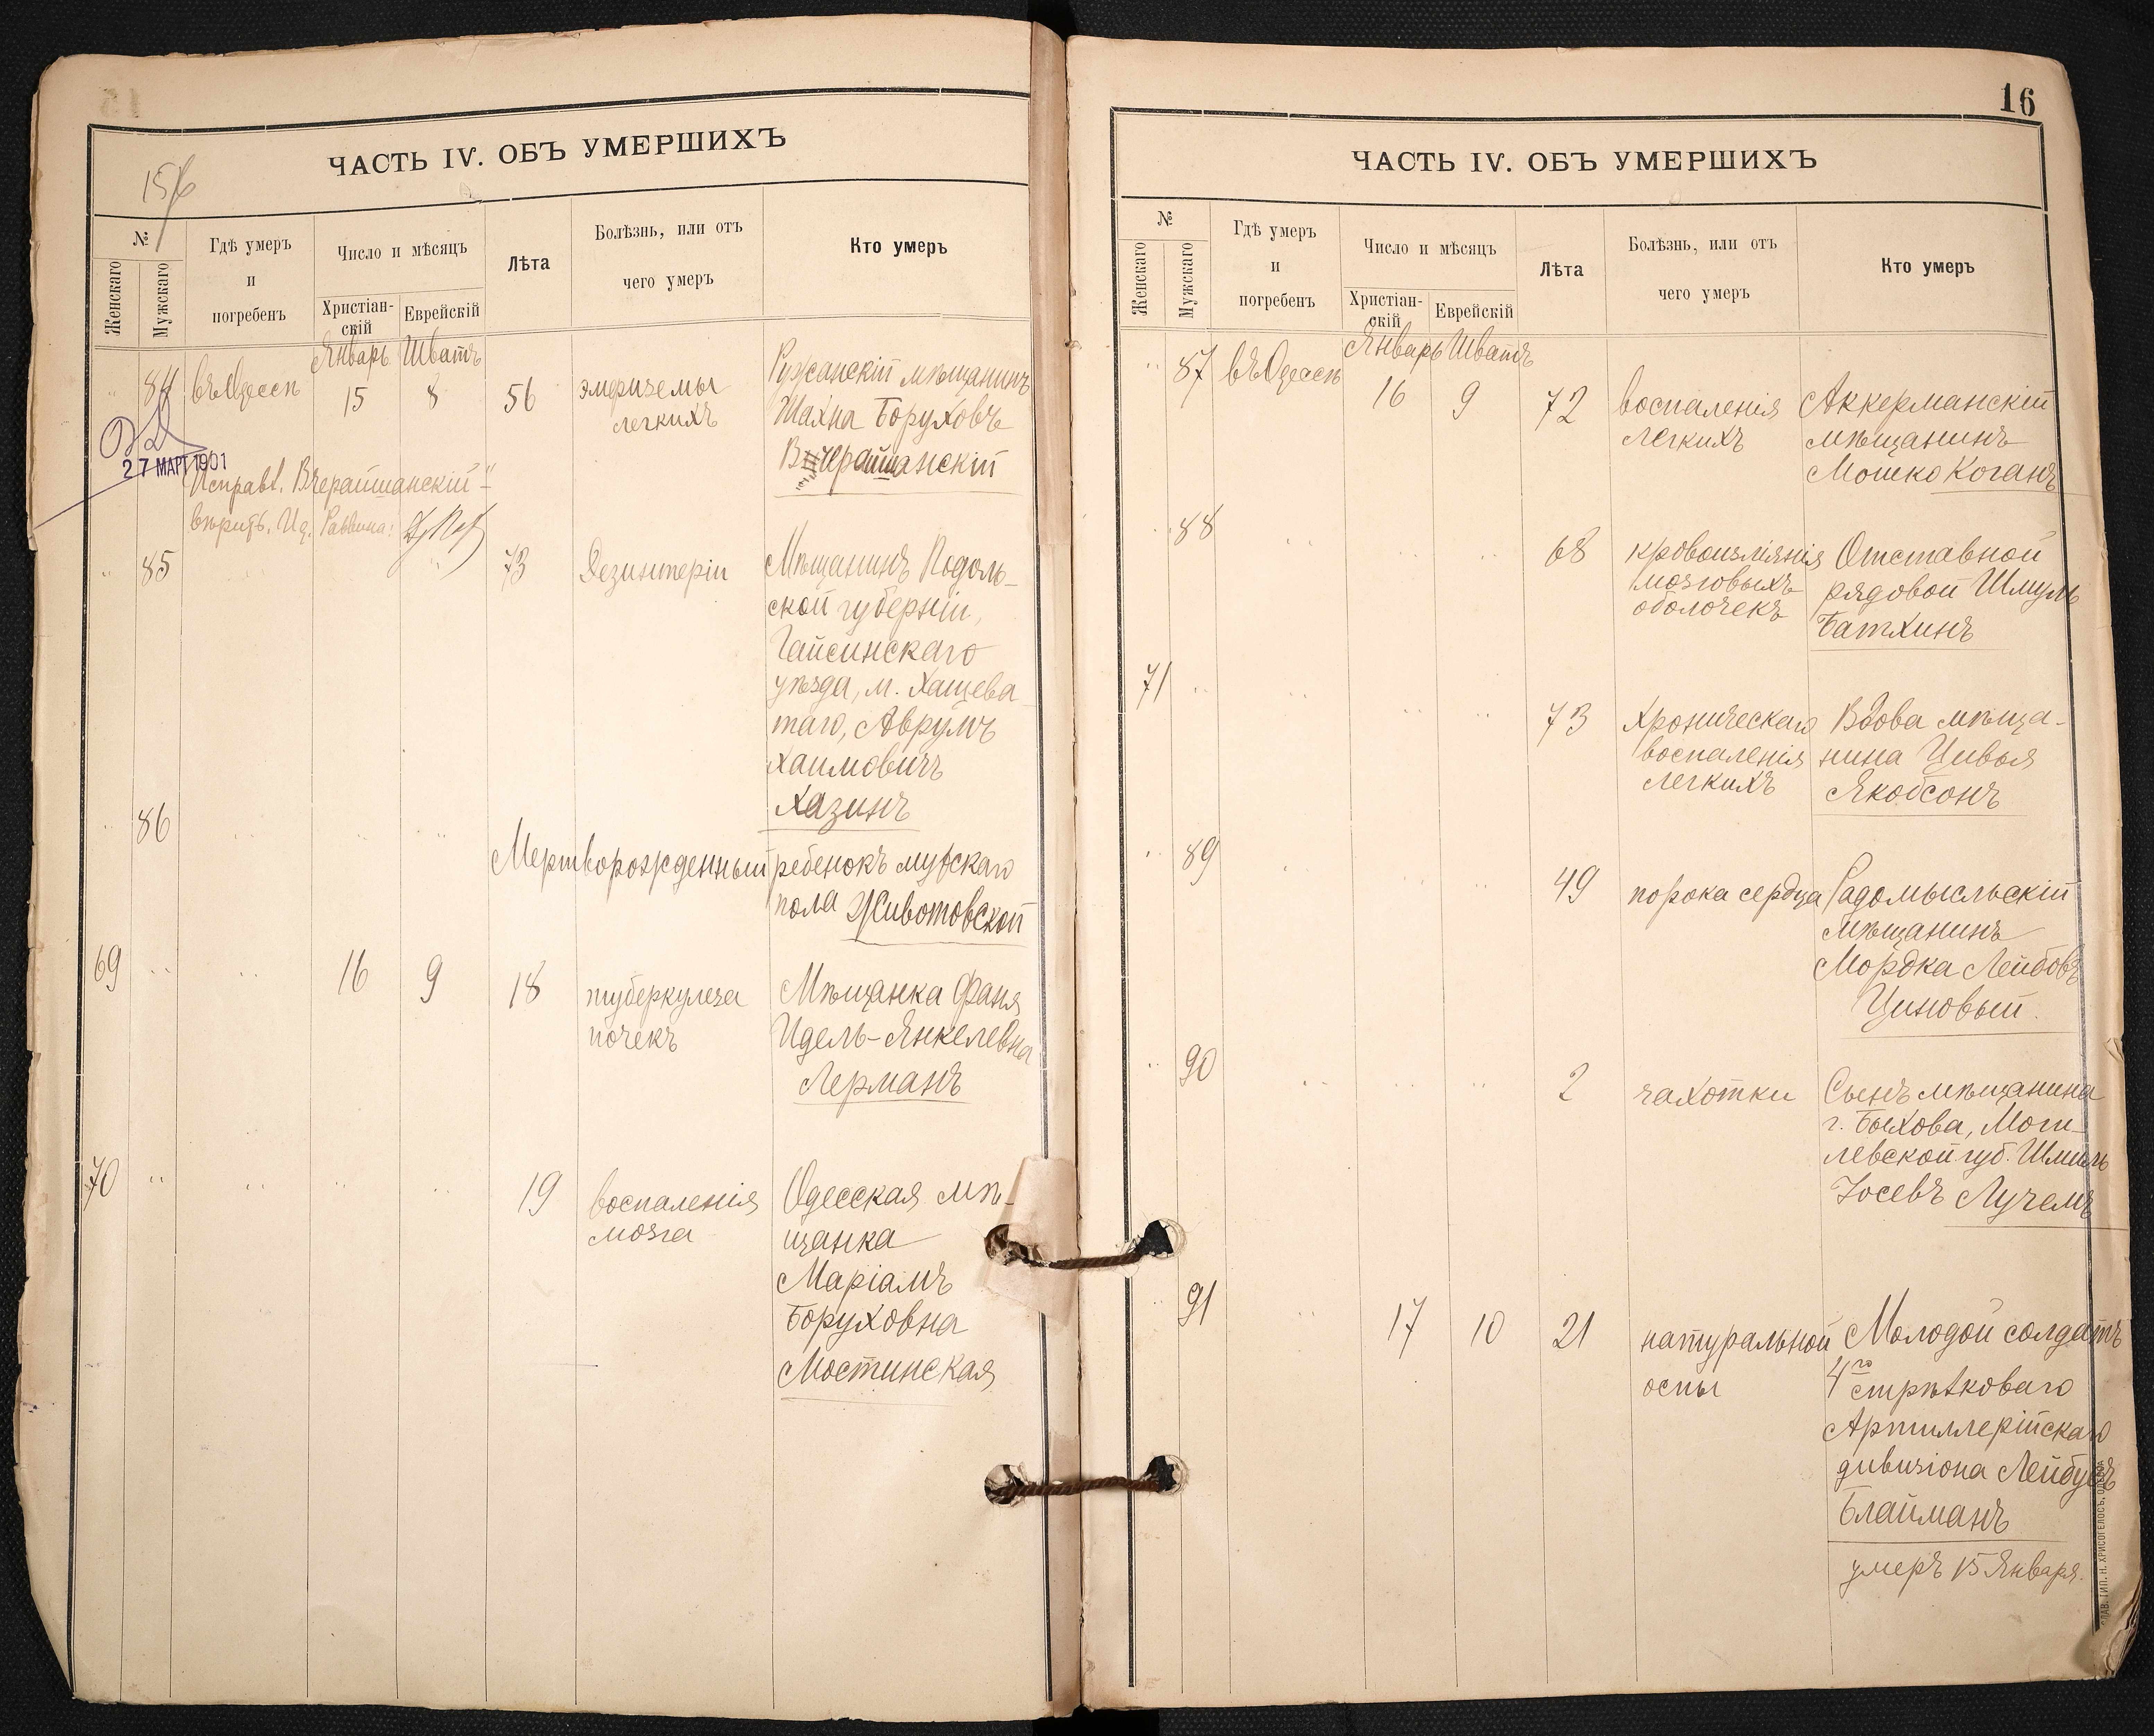 ЧАСТЬ IV. ОБЪ УМЕРШИХЪ
156
№
Женскаго
Мужскаго
Гдѣ умеръ
и
погребенъ
Число и мѣсяцъ
Христіан-
скій
Еврейскій
Лѣта
Болѣзнь, или отъ
чего умеръ
Кто умеръ
Январь Шватъ
„ 84 въ Одессѣ 15 8 56 эмфиземы
легкихъ
Ружанскій мѣщанинъ
Шахна Боруховъ
Вчерайшанскій
27 МАРТ 1901
Исправл. „Вчерайшанскій“
вѣрить. Раввина:
„ 85 „ „ „ 73 Дезинтеріи
Мѣщанинъ Подоль-
ской губерніи,
Гайсинскаго
уѣзда, м. Хащева
таго, Аврумъ
Хаимовичъ
Хазинъ
„ 86 „ „ „
Мертворожденный ребенокъ мужскаго
пола Животовской
69 „ „ 16 9 18 туберкулеза
почекъ
Мѣщанка Фаня
Идель-Янкелевна
Лерманъ
70 „ „ „ „ 19 воспаленія
мозга
Одесская мѣ-
щанка
Маріамъ
Боруховна
Мостинская
16
ЧАСТЬ IV. ОБЪ УМЕРШИХЪ
№
Женскаго
Мужскаго
Гдѣ умеръ
и
погребенъ
Число и мѣсяцъ
Христіан-
скій
Еврейскій
Лѣта
Болѣзнь, или отъ
чего умеръ
Кто умеръ
Январь Шватъ
„ 87 въ Одессѣ 16 9 72 воспаленія
легкихъ
Аккерманскій
мѣщанинъ
Мошко Коганъ
„ 88 „ „ „ 68 кровоизліянія
мозговыхъ
оболочекъ
Отставной
рядовой Шмуль
Батхинъ
71 „ „ „ „ 73 хроническаго
воспаленія
легкихъ
Вдова мѣща-
нина Цивья
Якобсонъ
„ 89 „ „ „ 49 порока сердца
Радомысльскій
мѣщанинъ
Мордка Лейбовъ
Циновый.
„ 90 „ „ „ 2 чахотки
Сынъ мѣщанина
г. Быхова, Моги-
левской губ. Шмиль
Іосевъ Лучемъ
„ 91 „ 17 10 21 натуральной
оспы
Молодой солдатъ
4го стрѣлковаго
Артиллерійскаго
дивизіона Лейбусъ
Блайманъ
умеръ 15 Января.
СЛАВ. ТИП. Н. ХРИСОГЕЛОСЪ, ОДЕССА